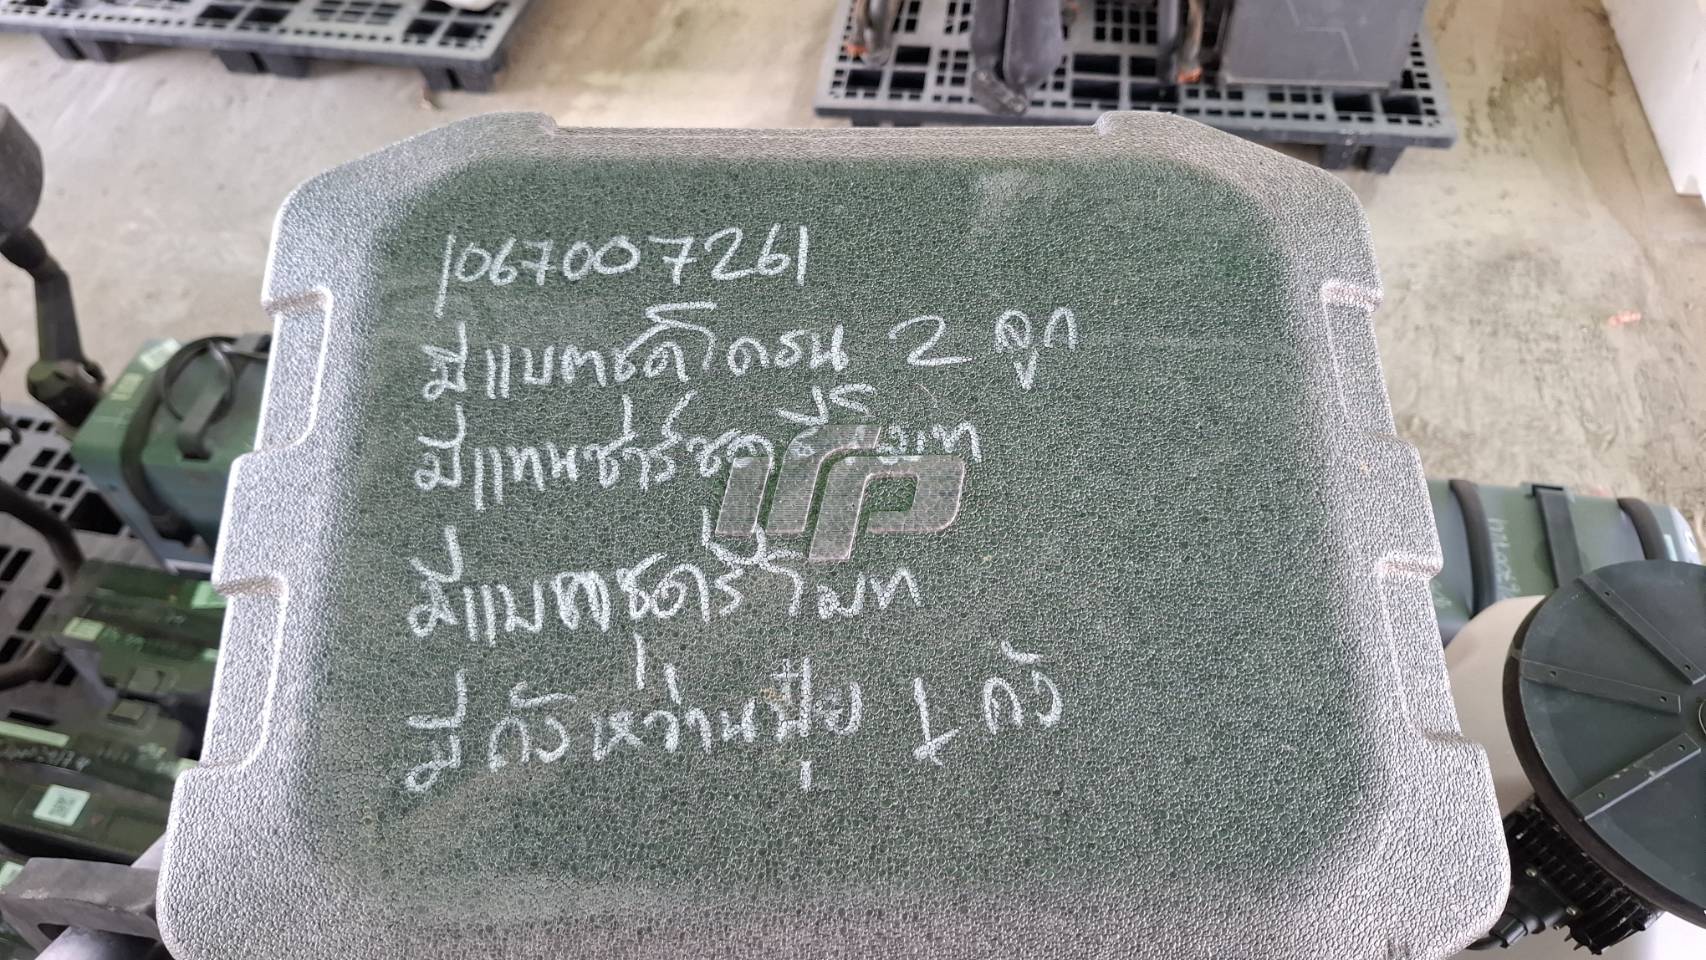 1067007261
มีแบตเตอรี่โดรน 2 ลูก
มีแทนชาร์ชตรีโมท
มีแบตรีโมท
มีถังหว่านปุ๋ย 1 ถัง